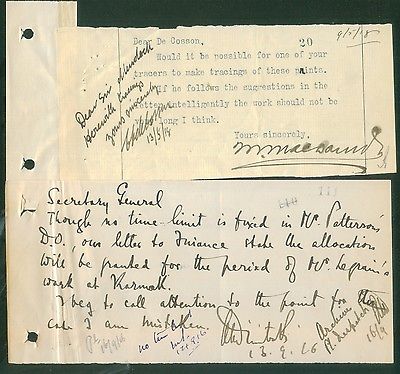 9/5/18
Dear De Cosson, 20
Would it be possible for one of your
tracers to make tracings of these points.
If he follows the suggestions in the
letter intelligently the work should not be
long I think.
Yours sincerely,
Dear Sir Murdoch
Herewith
yours sincerely
13/5/18
Secretary General
111
Though no time-limit is fixed in Mr. Patterson's
D.O., our letter to Finance state the allocation
will be granted for the period of Mr. Legrain's
work at Karnak.
I beg to call attention to the point for the
case I am mistaken.
13.9.16
16/9